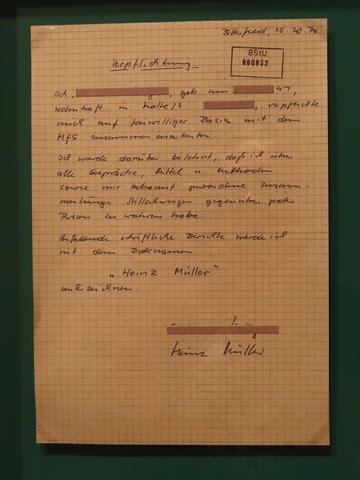 Bitterfeld, 15. 10. 70
BStU
000052
Verpflichtung
Ich, , geb am 47,
wohnhaft in Halle/S , verpflichte
mich auf freiwilliger Basis mit dem
MfS zusammen zuarbeiten.
Ich wurde darüber belehrt, daß ich über
alle Gespräche, Mittel u. Methoden
sowie mir bekannt gewordene Zusam-
menhänge Stillschweigen gegenüber jeder
Person zu wahren habe.
Anfallende schriftliche Berichte werde ich
mit dem Decknamen
„Heinz Müller"
unterzeichnen.
Heinz Müller